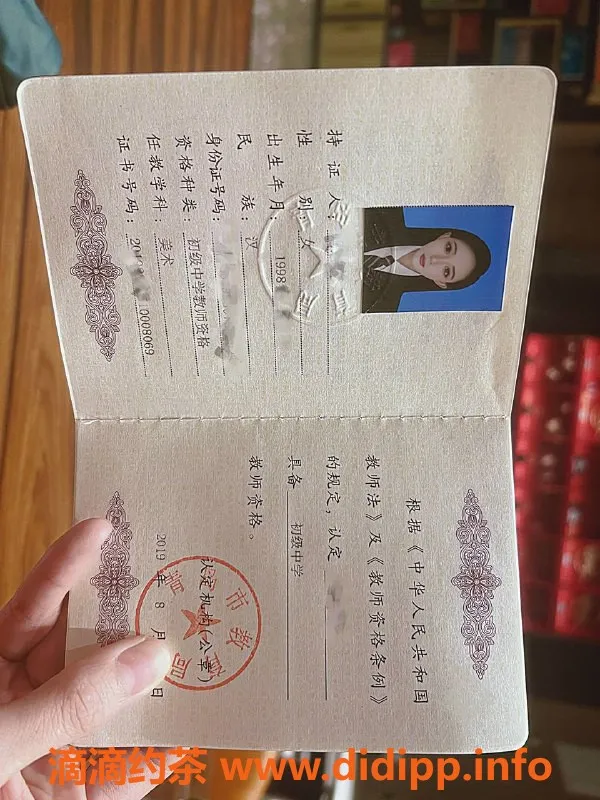 持证人：
性别：女
出生年月：1998
民族：汉
身份证号码：
资格种类：初级中学教师资格
任教学科：美术
证书号码：20 0008069
根据《中华人民共和国
教师法》及《教师资格条例》
的规定，认定
具备 初级中学
教师资格。
认定机构(公章)
2019年8月 日
市教育局
滴滴约茶 www.didipp.info